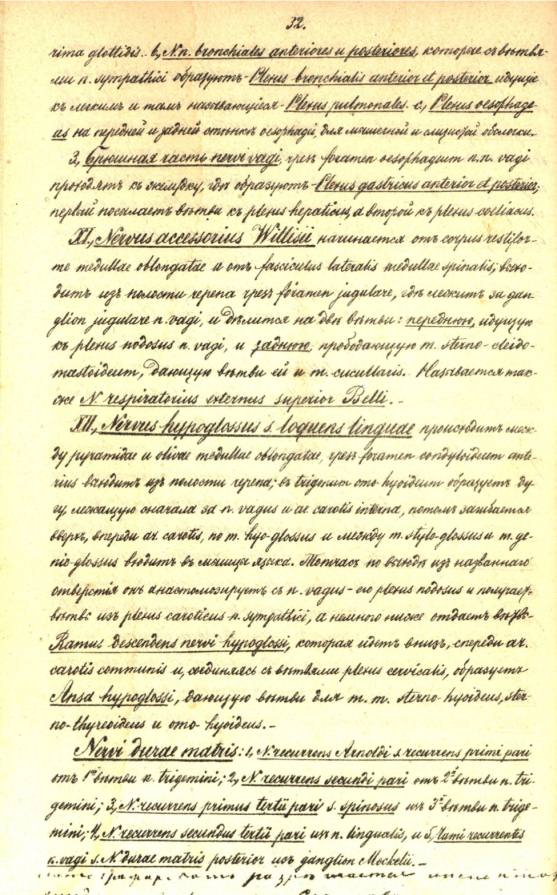 32.
rima glottidis. б, N.n. bronchiales anteriores и posteriores, которые съ вѣтвя-
ми n. sympathici образуютъ - Plexus bronchialis anterior et posterior идущіе
къ легкимъ и тамъ называющіеся - Plexus pulmonales. c, Plexus oesophage-
us на передней и задней стѣнкѣ oesophagi, для мышечной и слизистой оболочки.
3, Брюшная часть nervi vagi, чрезъ foramen oesophageum n.n. vagi
проходятъ къ желудку, гдѣ образуютъ - Plexus gastricus anterior et posterior;
первый посылаетъ вѣтви къ plexus hepaticus, а второй къ plexus coeliacus.
XI, Nervus accessorius Willisii начинается отъ corpus restifor-
me medullae oblongatae и отъ fasciculus lateralis medullae spinalis; выхо-
дитъ изъ полости черепа чрезъ foramen jugulare, гдѣ лежитъ за gan-
glion jugulare n. vagi, и дѣлится на двѣ вѣтви: переднюю, идущую
къ plexus nodosus n. vagi, и заднюю, прободающую m. sterno-cleido-
mastoideum, дающую вѣтви ей и m. cucullaris. Называется так-
же N respiratorius externus superior Belli. -
XII, Nervus hypoglossus s loquens linguae происходитъ меж-
ду pyramidae и olivae medullae oblongatae, чрезъ foramen condyloideum ante-
rius выходитъ изъ полости черепа; въ trigonum omo-hyoideum образуетъ ду-
гу, лежащую сначала за n. vagus и ar carotis interna, потомъ загибается
вверхъ, впереди ar. carotis, по m. hyo-glossus и между m. stylo-glossus и m. ge-
nio-glossus входитъ въ мышцы языка. Тотчасъ по выходѣ изъ названнаго
отверстія онъ анастомозируетъ съ n. vagus - его plexus nodosus и получаетъ
вѣтвь изъ plexus caroticus n. sympathici, а немного ниже отдаетъ вѣтвь
Ramus descendens nervi hypoglossi, которая идетъ внизъ, спереди ar.
carotis communis и, соединяясь съ вѣтвями plexus cervicalis, образуетъ
Ansa hypoglossi, дающую вѣтви для m. m. sterno-hyoideus, ster-
no-thyreoideus и omo-hyoideus. -
Nervi durae matris: 1, N recurrens Arnoldi s. recurrens primi pari
отъ 1й вѣтви n. trigemini; 2, N. recurrens secundi pari отъ 2й вѣтви n. tri-
gemini; 3, N. recurrens primus tertii pari s. spinosus изъ 3й вѣтви n. trige-
mini; 4, N. recurrens secundus tertii pari изъ n. lingualis, и 5, Rami recurrentes
n. vagi s. N durae matris posterior изъ ganglion Meckelii. -